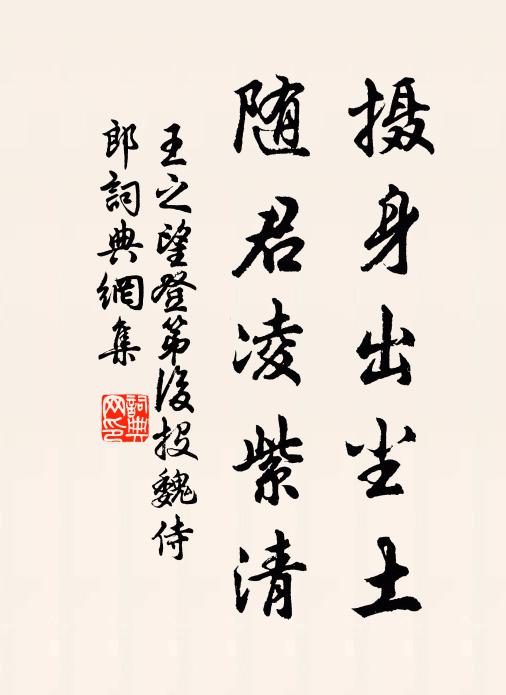 摄身出尘土
随君凌紫清
王之望登第後投魏侍
郎詞典網集
詞典
网印